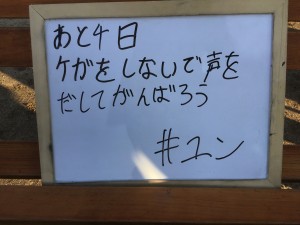 あと4日
ケガをしないで声を
だしてがんばろう
#ユン